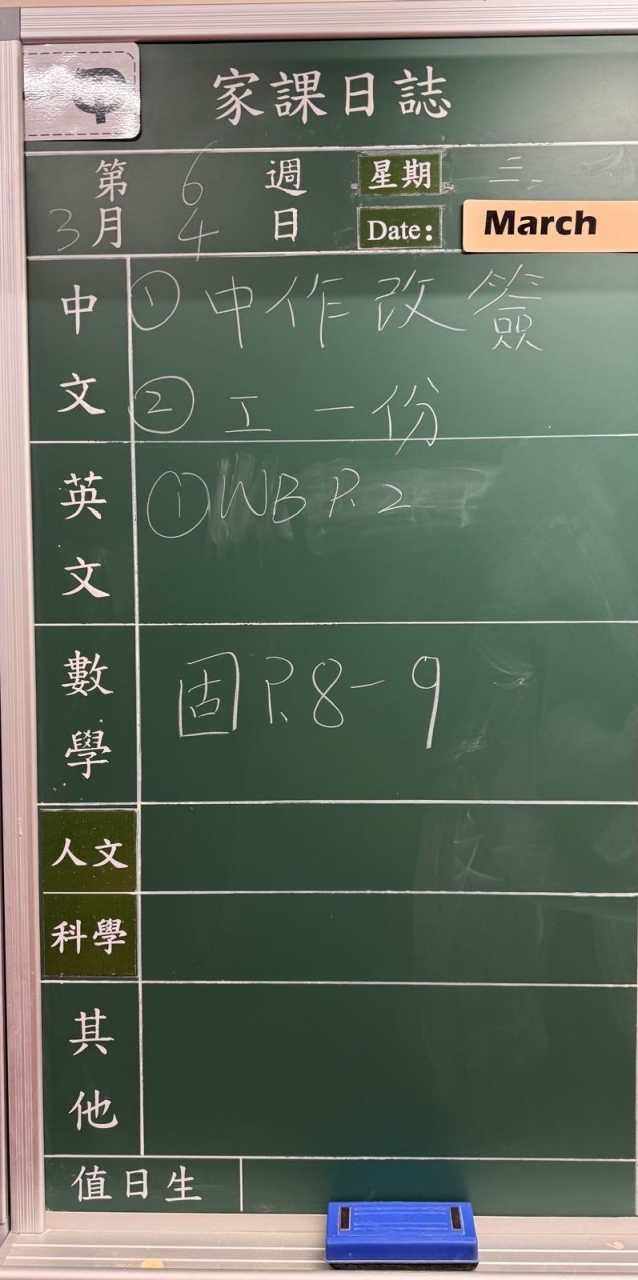 家課日誌
第 6 週 星期 三
3月 4 日 Date: March
中文 ① 中作改簽
② 工一份
英文 ① WB P.2
數學 固 P.8-9
人文
科學
其他
值日生